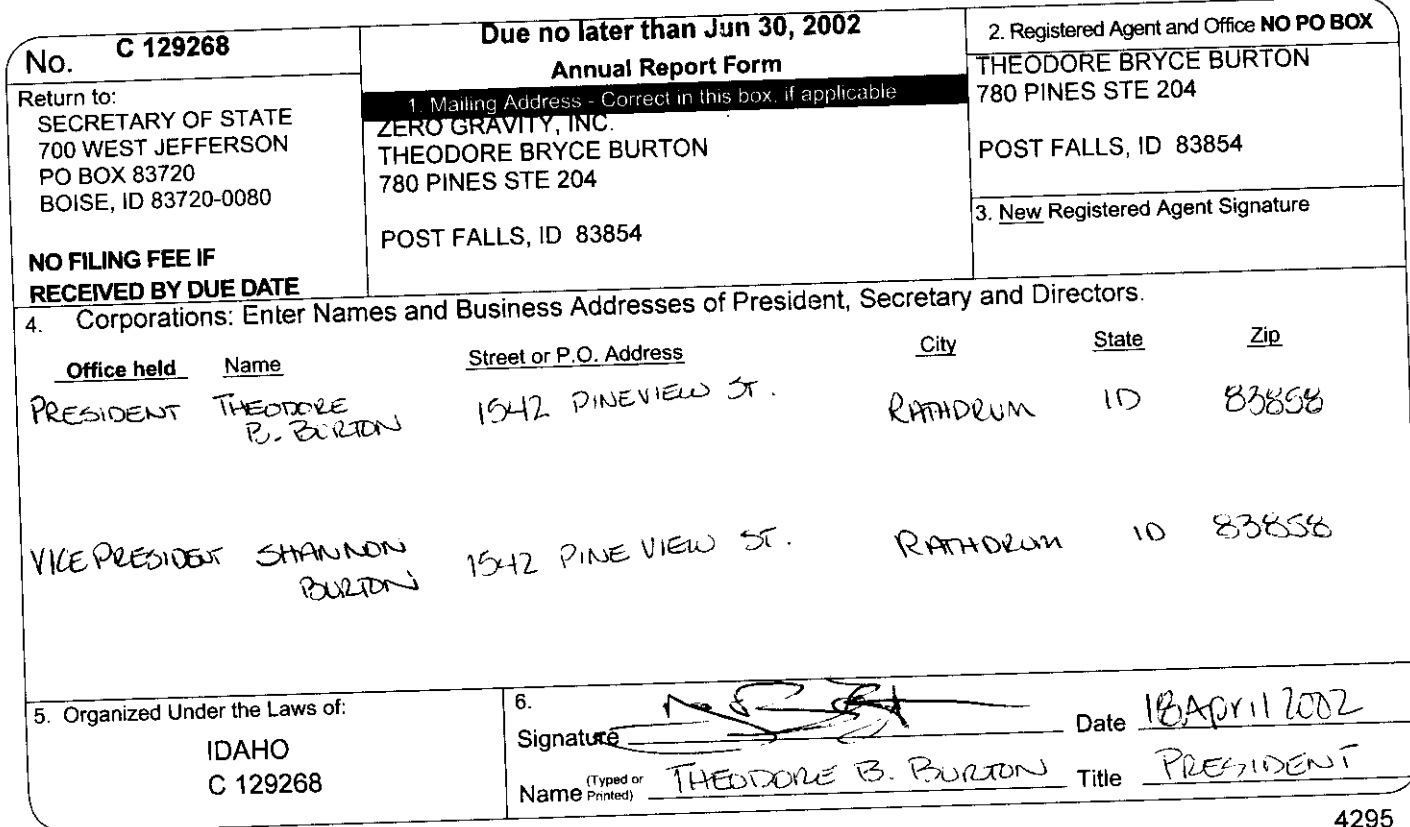 No. C 129268
Return to:
SECRETARY OF STATE
700 WEST JEFFERSON
PO BOX 83720
BOISE, ID 83720-0080
NO FILING FEE IF
RECEIVED BY DUE DATE
Due no later than Jun 30, 2002
Annual Report Form
1. Mailing Address - Correct in this box, if applicable
ZERO GRAVITY, INC.
THEODORE BRYCE BURTON
780 PINES STE 204
POST FALLS, ID 83854
2. Registered Agent and Office NO PO BOX
THEODORE BRYCE BURTON
780 PINES STE 204
POST FALLS, ID 83854
3. New Registered Agent Signature
4. Corporations: Enter Names and Business Addresses of President, Secretary and Directors.
Office held Name Street or P.O. Address City State Zip
PRESIDENT THEODORE 1542 PINEVIEW ST. RATHDRUM ID 83858
B. BURTON
VICE PRESIDENT SHANNON 1542 PINE VIEW ST. RATHDRUM ID 83858
BURTON
5. Organized Under the Laws of:
IDAHO
C 129268
6.
Signature Date 18 April 2002
Name (Typed or Printed) THEODORE B. BURTON Title PRESIDENT
4295